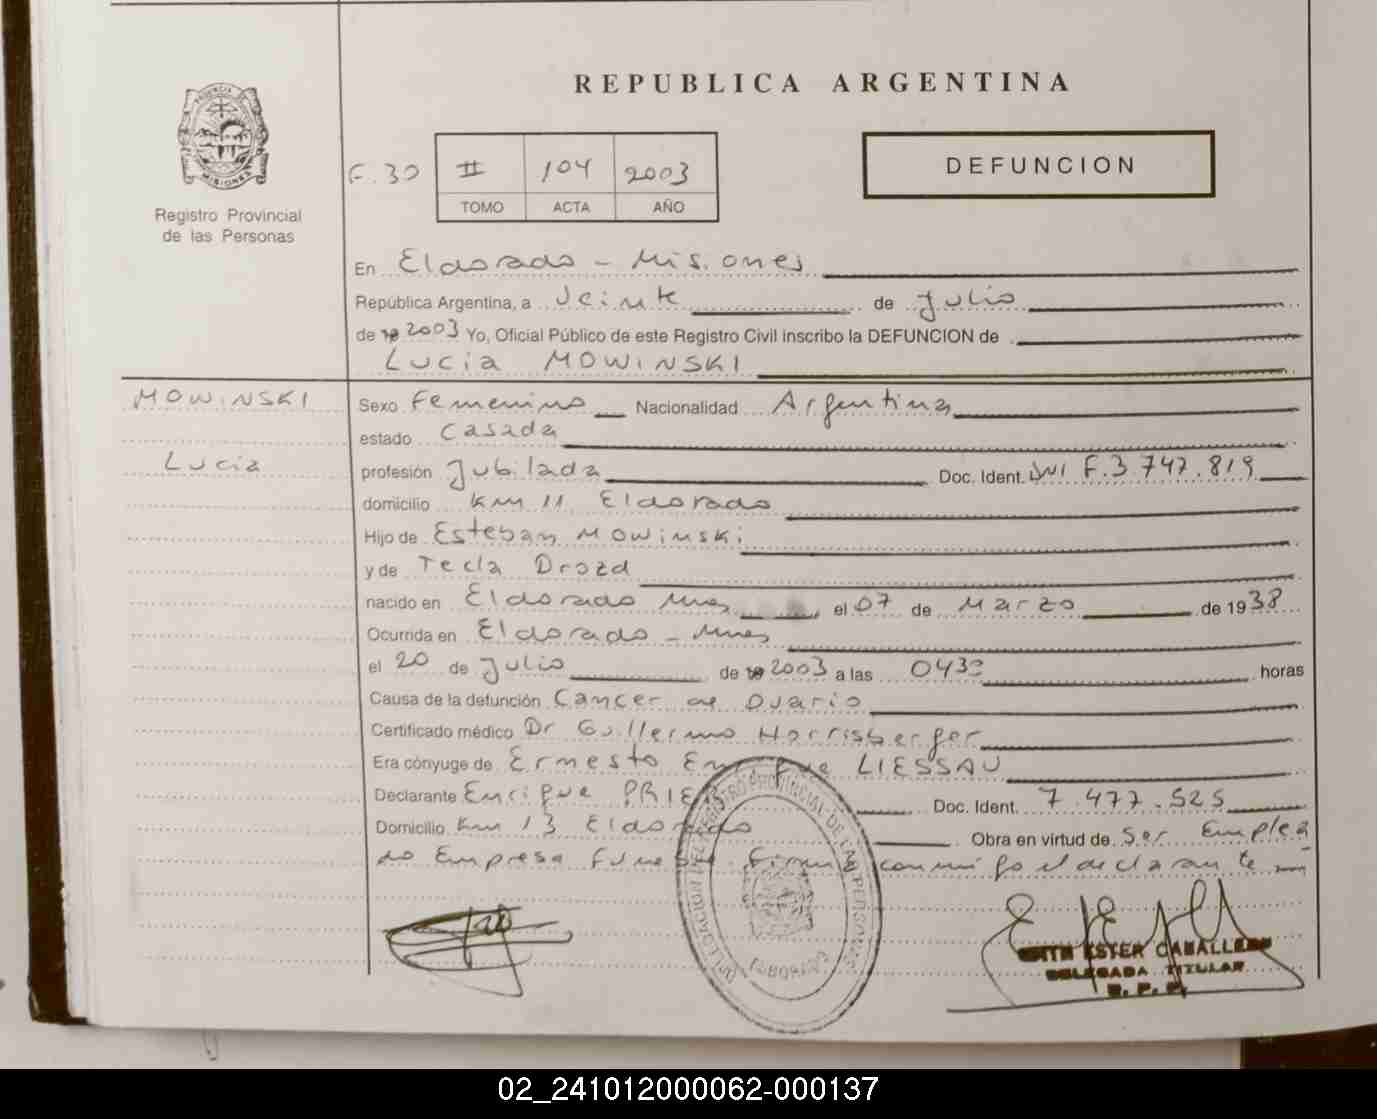 REPUBLICA ARGENTINA
PROVINCIA DE
MISIONES
Registro Provincial
de las Personas
F.30 II 104 2003
TOMO ACTA AÑO
DEFUNCION
En Eldorado - Misiones
República Argentina, a Veinte de Julio
de 19 2003 Yo, Oficial Público de este Registro Civil inscribo la DEFUNCION de
Lucia MOWINSKI
MOWINSKI
Lucia
Sexo Femenino Nacionalidad Argentina
estado Casada
profesión Jubilada Doc. Ident. DNI F.3 747.819
domicilio Km 11 Eldorado
Hijo de Esteban Mowinski
y de Tecla Drozd
nacido en Eldorado Mnes el 07 de Marzo de 1938
Ocurrida en Eldorado - Mnes
el 20 de Julio de 19 2003 a las 0430 horas
Causa de la defunción Cancer de Ovario
Certificado médico Dr Guillermo Horrisberger
Era cónyuge de Ernesto Enrique LIESSAU
Declarante Enrique Doc. Ident. 7.477.525
Domicilio Km 13 Eldorado Obra en virtud de Ser Emplea
do Empresa Funebre Firma conmigo el declarante
DELEGACION DEL REGISTRO PROVINCIAL DE LAS PERSONAS
ELDORADO
EDITH ESTER CABALLERO
DELEGADA TITULAR
R. P. P.
02_241012000062-000137